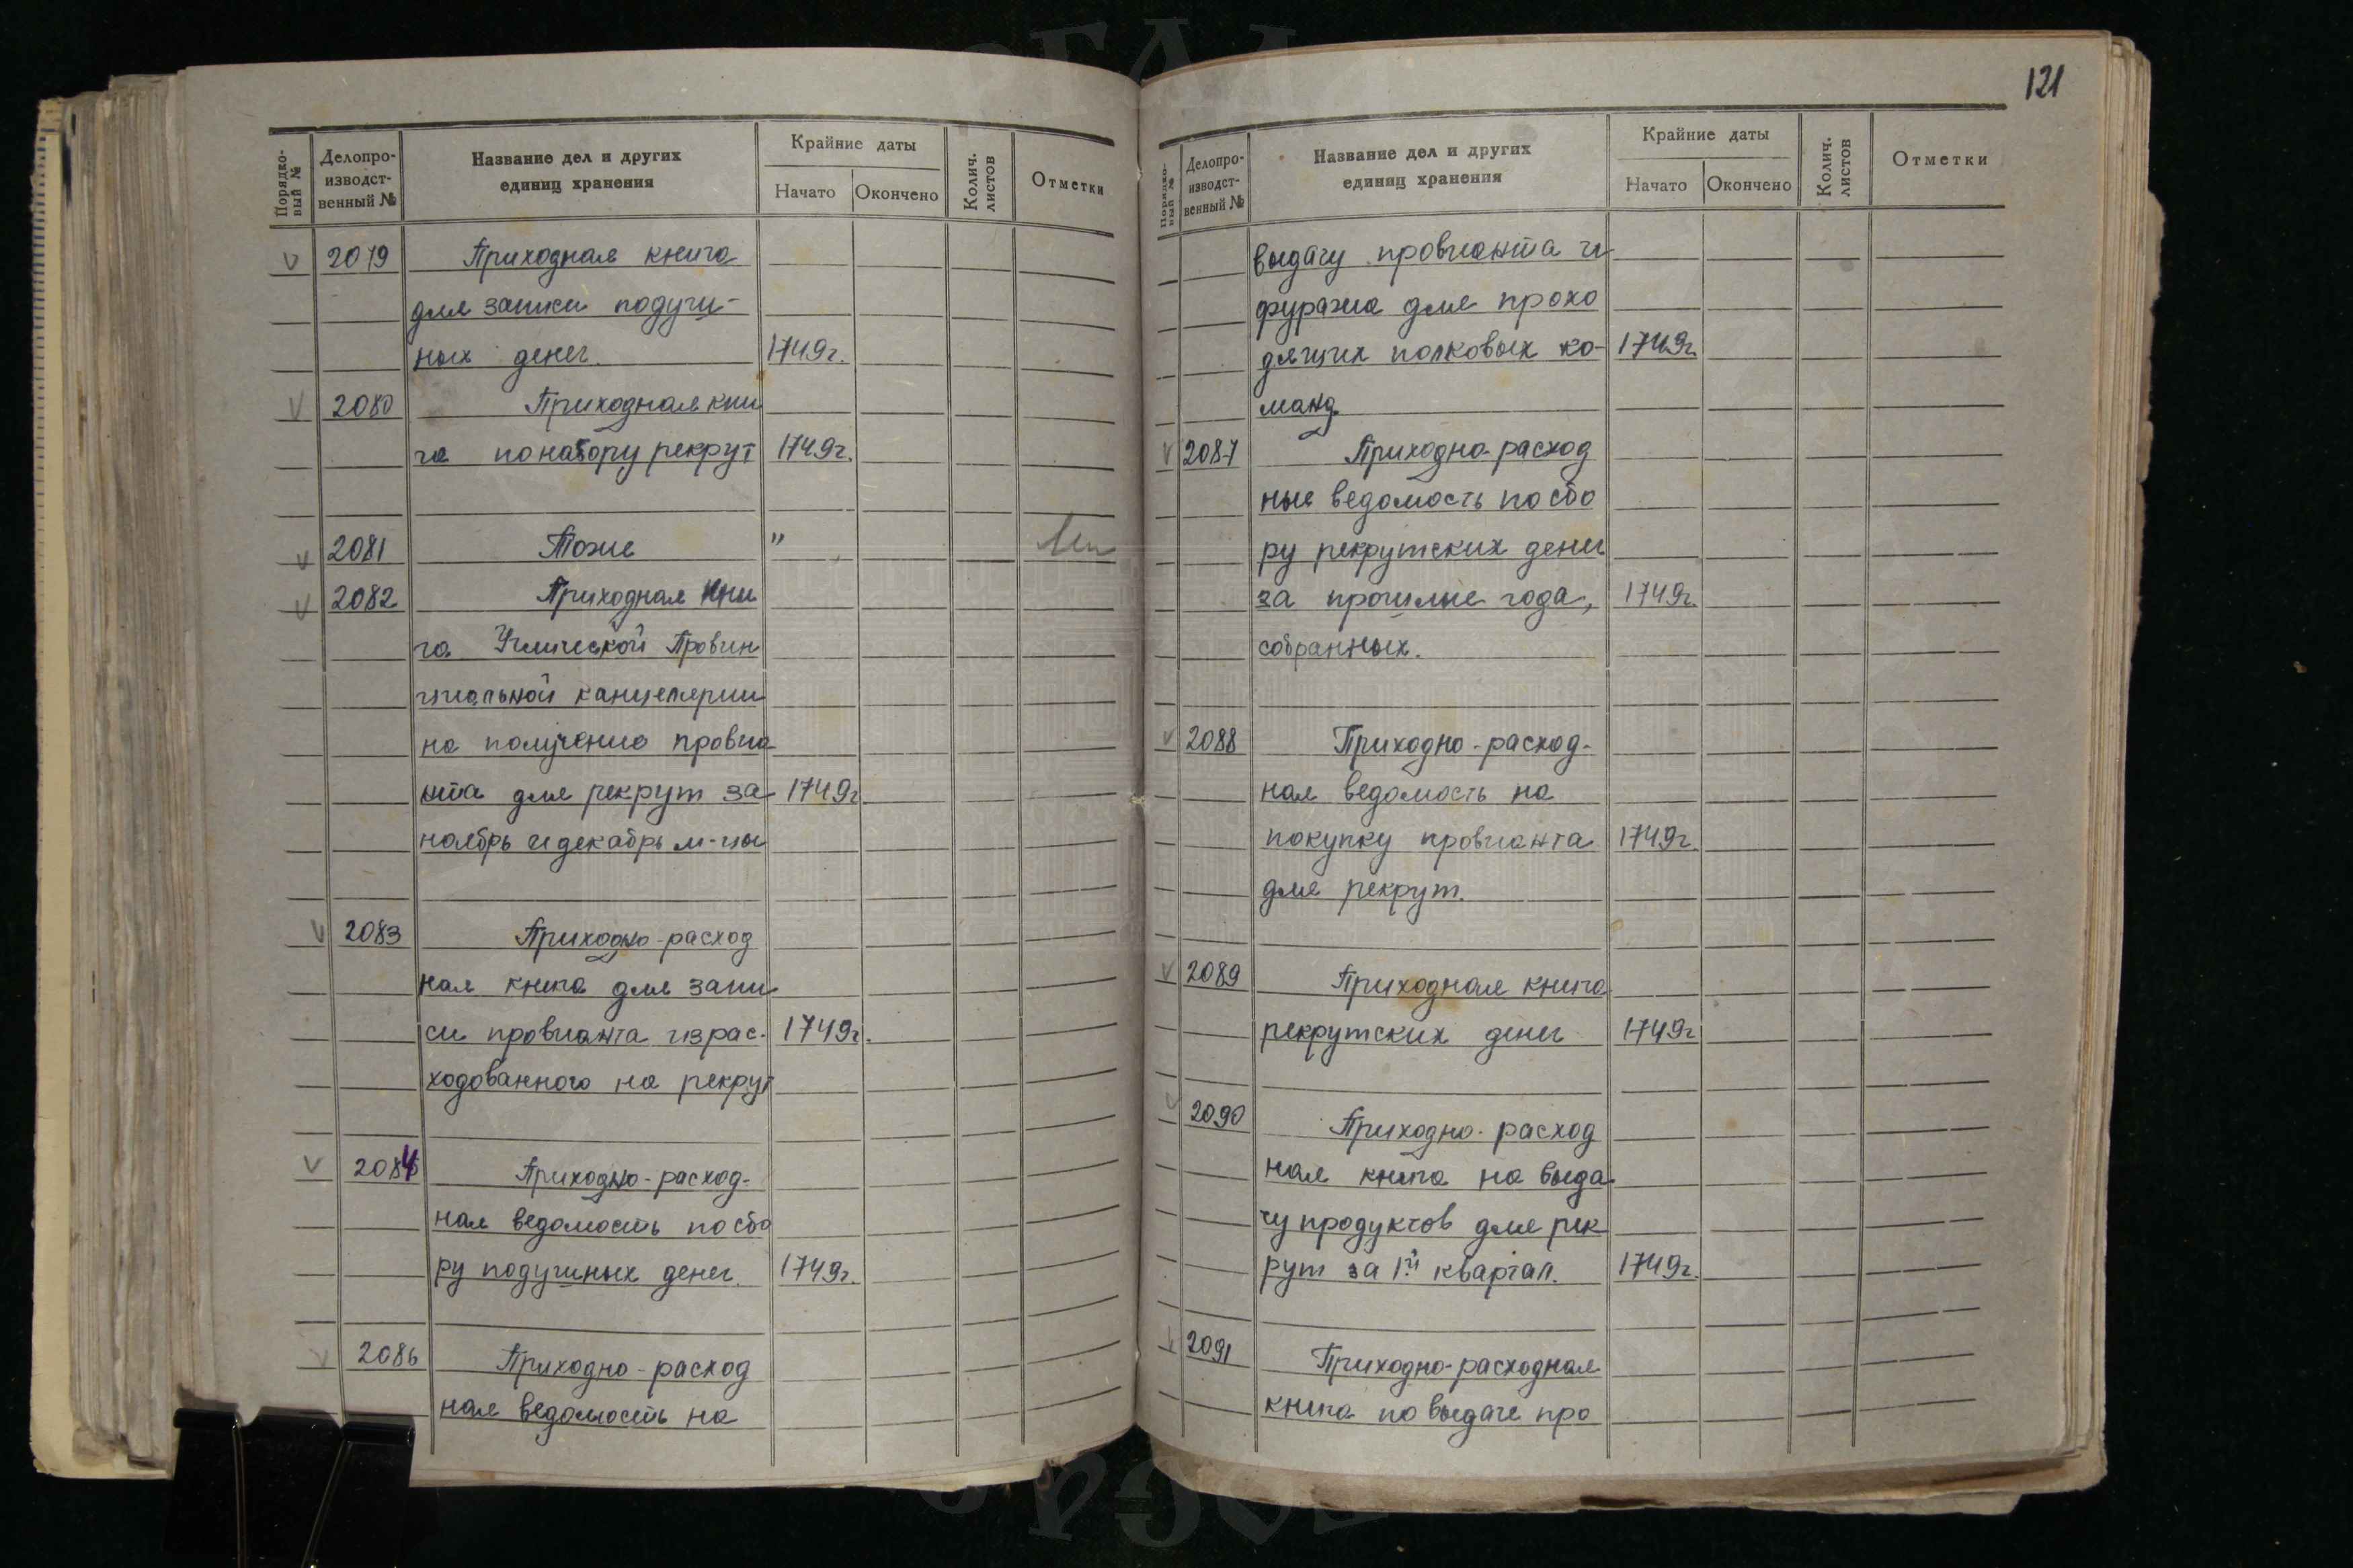 121
Порядко-
вый №
Делопро-
изводст-
венный №
Название дел и других
единиц хранения
Крайние даты
Начато
Окончено
Колич.
листов
Отметки
V 2079 Приходная книга
для записи подуш-
ных денег. 1749г.
V 2080 Приходная кни
га по набору рекрут 1749г.
V 2081 Тоже "
V 2082 Приходная кни
га Угличской Провин
циальной канцелярии
на получение провиа
нта для рекрут за 1749г
ноябрь и декабрь м-цы
V 2083 Приходно-расход
ная книга для запи
си провианта израс- 1749г.
ходованного на рекрут
V 2084 Приходно-расход-
ная ведомость по сбо
ру подушных денег. 1749г.
V 2086 Приходно-расход
ная ведомость на
Порядко-
вый №
Делопро-
изводст-
венный №
Название дел и других
единиц хранения
Крайние даты
Начато
Окончено
Колич.
листов
Отметки
выдачу провианта и
фуража для прохо
дящих полковых ко- 1749г.
манд
V 2087 Приходно-расход
ные ведомость по сбо
ру рекрутских денег
за прошлые года, 1749г.
собранных.
V 2088 Приходно-расход-
ная ведомость на
покупку провианта 1749г.
для рекрут.
V 2089 Приходная книга
рекрутских денег 1749г
V 2090 Приходно-расход
ная книга на выда
чу продуктов для рек
рут за 1й квартал. 1749г.
V 2091 Приходно-расходная
книга по выдаче про